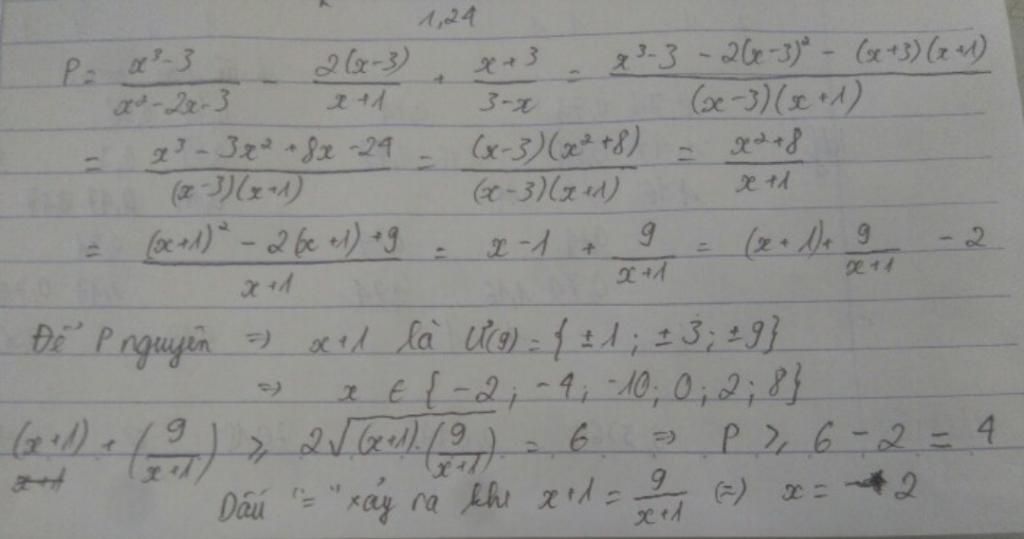 1,24
P = \frac{x³-3}{x²-2x-3} - \frac{2(x-3)}{x+1} + \frac{x+3}{3-x} = \frac{x³-3 - 2(x-3)² - (x+3)(x+1)}{(x-3)(x+1)}
= \frac{x³ - 3x² + 8x - 24}{(x-3)(x+1)} = \frac{(x-3)(x²+8)}{(x-3)(x+1)} = \frac{x²+8}{x+1}
= \frac{(x+1)² - 2(x+1) + 9}{x+1} = x-1 + \frac{9}{x+1} = (x+1) + \frac{9}{x+1} - 2
Để P nguyên => x+1 là Ư(9) = {±1 ; ±3 ; ±9}
=> x ∈ {-2 ; -4 ; -10 ; 0 ; 2 ; 8}
(x+1) + (\frac{9}{x+1}) ≥ 2√((x+1).(\frac{9}{x+1})) = 6 => P ≥ 6 - 2 = 4
Dấu "=" xảy ra khi x+1 = \frac{9}{x+1} (=) x = 2